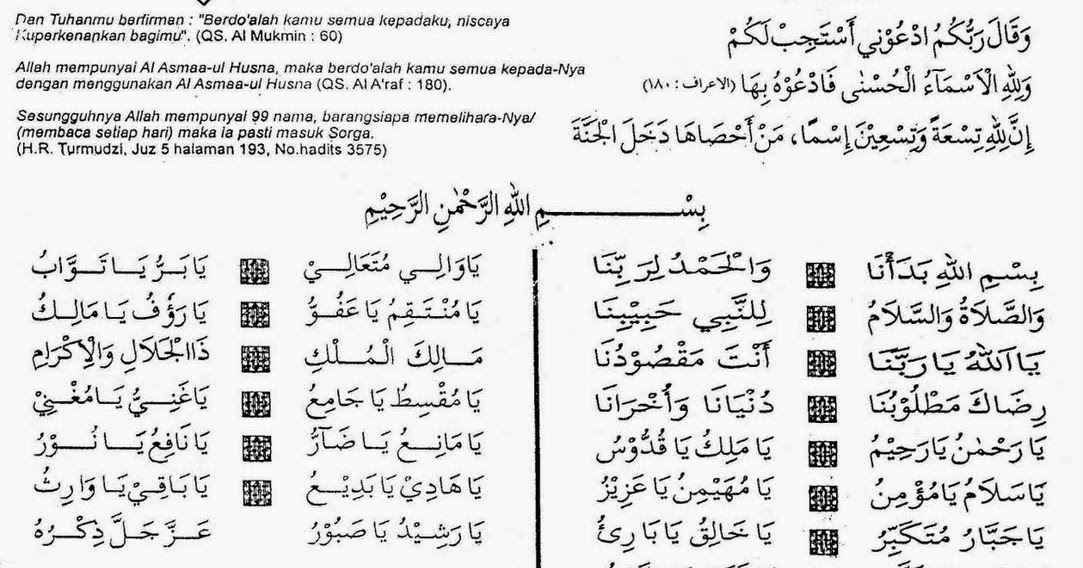 Dan Tuhanmu berfirman : "Berdo'alah kamu semua kepadaku, niscaya
Kuperkenankan bagimu". (QS. Al Mukmin : 60)
Allah mempunyai Al Asmaa-ul Husna, maka berdo'alah kamu semua kepada-Nya
dengan menggunakan Al Asmaa-ul Husna (QS. Al A'raf : 180).
Sesungguhnya Allah mempunyai 99 nama, barangsiapa memelihara-Nya/
(membaca setiap hari) maka ia pasti masuk Sorga.
(H.R. Turmudzi, Juz 5 halaman 193, No.hadits 3575)
وَقَالَ رَبُّكُمُ ادْعُوْنِي أَسْتَجِبْ لَكُمْ
وَلِلّٰهِ الْاَسْمَآءُ الْحُسْنٰى فَادْعُوْهُ بِهَا (الاعراف : ١٨٠)
إِنَّ لِلّٰهِ تِسْعَةً وَتِسْعِيْنَ إِسْمًا، مَنْ أَحْصَاهَا دَخَلَ الْجَنَّةَ
بِسْمِ اللهِ الرَّحْمٰنِ الرَّحِيْمِ
بِسْمِ اللهِ بَدَأْنَا وَالْحَمْدُ لِرَبِّنَا
وَالصَّلَاةُ وَالسَّلَامُ لِلنَّبِي حَبِيْبِنَا
يَا اَللهُ يَا رَبَّنَا أَنْتَ مَقْصُوْدُنَا
رِضَاكَ مَطْلُوْبُنَا دُنْيَانَا وَأُخْرَانَا
يَا رَحْمٰنُ يَا رَحِيْمُ يَا مَلِكُ يَا قُدُّوْسُ
يَا سَلَامُ يَا مُؤْمِنُ يَا مُهَيْمِنُ يَا عَزِيْزُ
يَا جَبَّارُ مُتَكَبِّرُ يَا خَالِقُ يَا بَارِئُ
يَا وَالِي مُتَعَالِيْ يَا بَرُّ يَا تَوَّابُ
يَا مُنْتَقِمُ يَا عَفُوُّ يَا رَؤُفُ يَا مَالِكُ
مَالِكَ الْمُلْكِ ذَا الْجَلَالِ وَالْإِكْرَامِ
يَا مُقْسِطُ يَا جَامِعُ يَا غَنِيُّ يَا مُغْنِيْ
يَا مَانِعُ يَا ضَآرُّ يَا نَافِعُ يَا نُوْرُ
يَا هَادِيْ يَا بَدِيْعُ يَا بَاقِيْ يَا وَارِثُ
يَا رَشِيْدُ يَا صَبُوْرُ عَزَّ جَلَّ ذِكْرُهُ